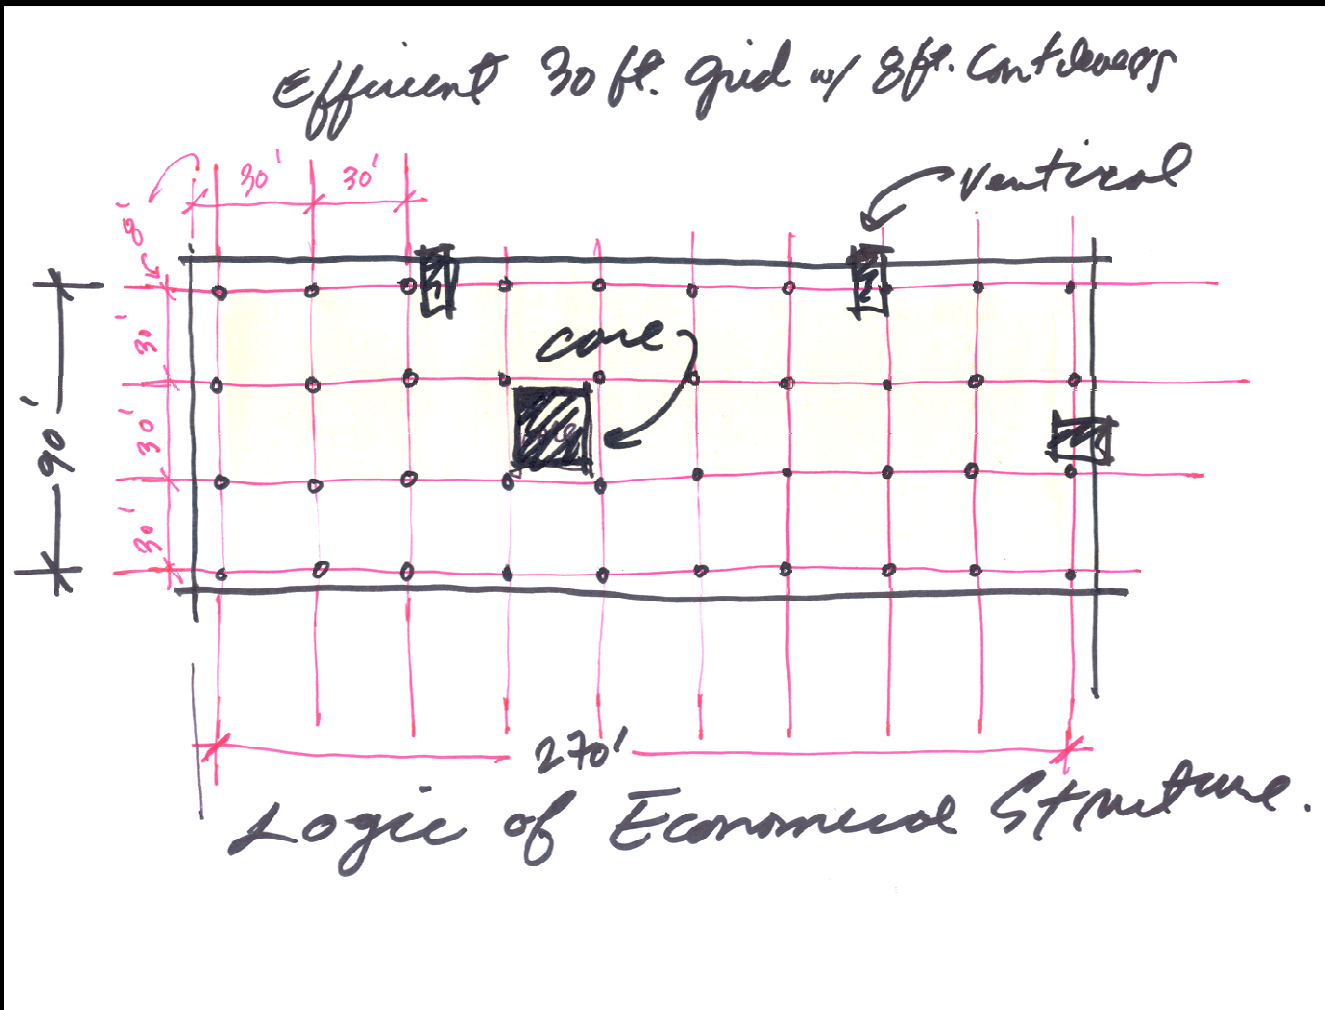 Efficient 30 ft. grid w/ 8 ft. Cantilevers
30' 30'
Vertical
8'
core
30'
30'
30'
90'
270'
Logic of Economical Structure.